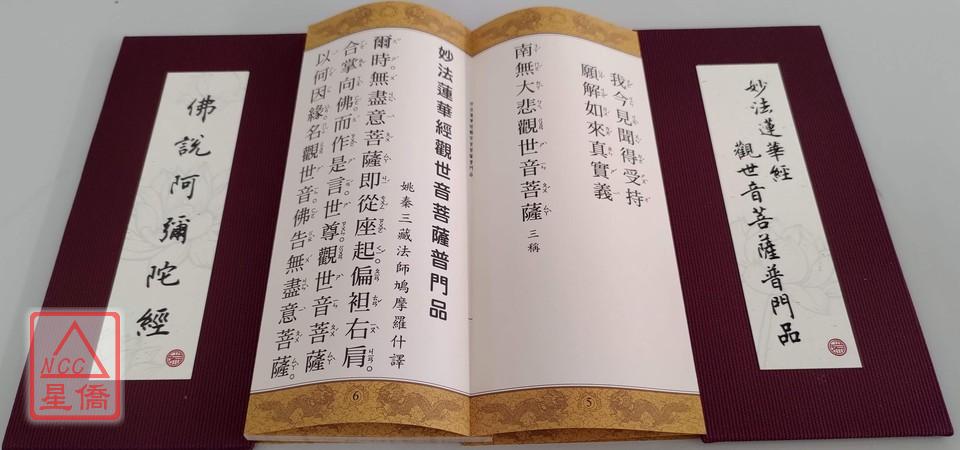 妙法蓮華經
觀世音菩薩普門品
我今見聞得受持
願解如來真實義
南無大悲觀世音菩薩 三稱
5
妙法蓮華經觀世音菩薩普門品
姚秦三藏法師鳩摩羅什譯
爾時無盡意菩薩即從座起。偏袒右肩。
合掌向佛而作是言。世尊。觀世音菩薩
以何因緣名觀世音。佛告無盡意菩薩。
6
佛說阿彌陀經
NCC
星僑